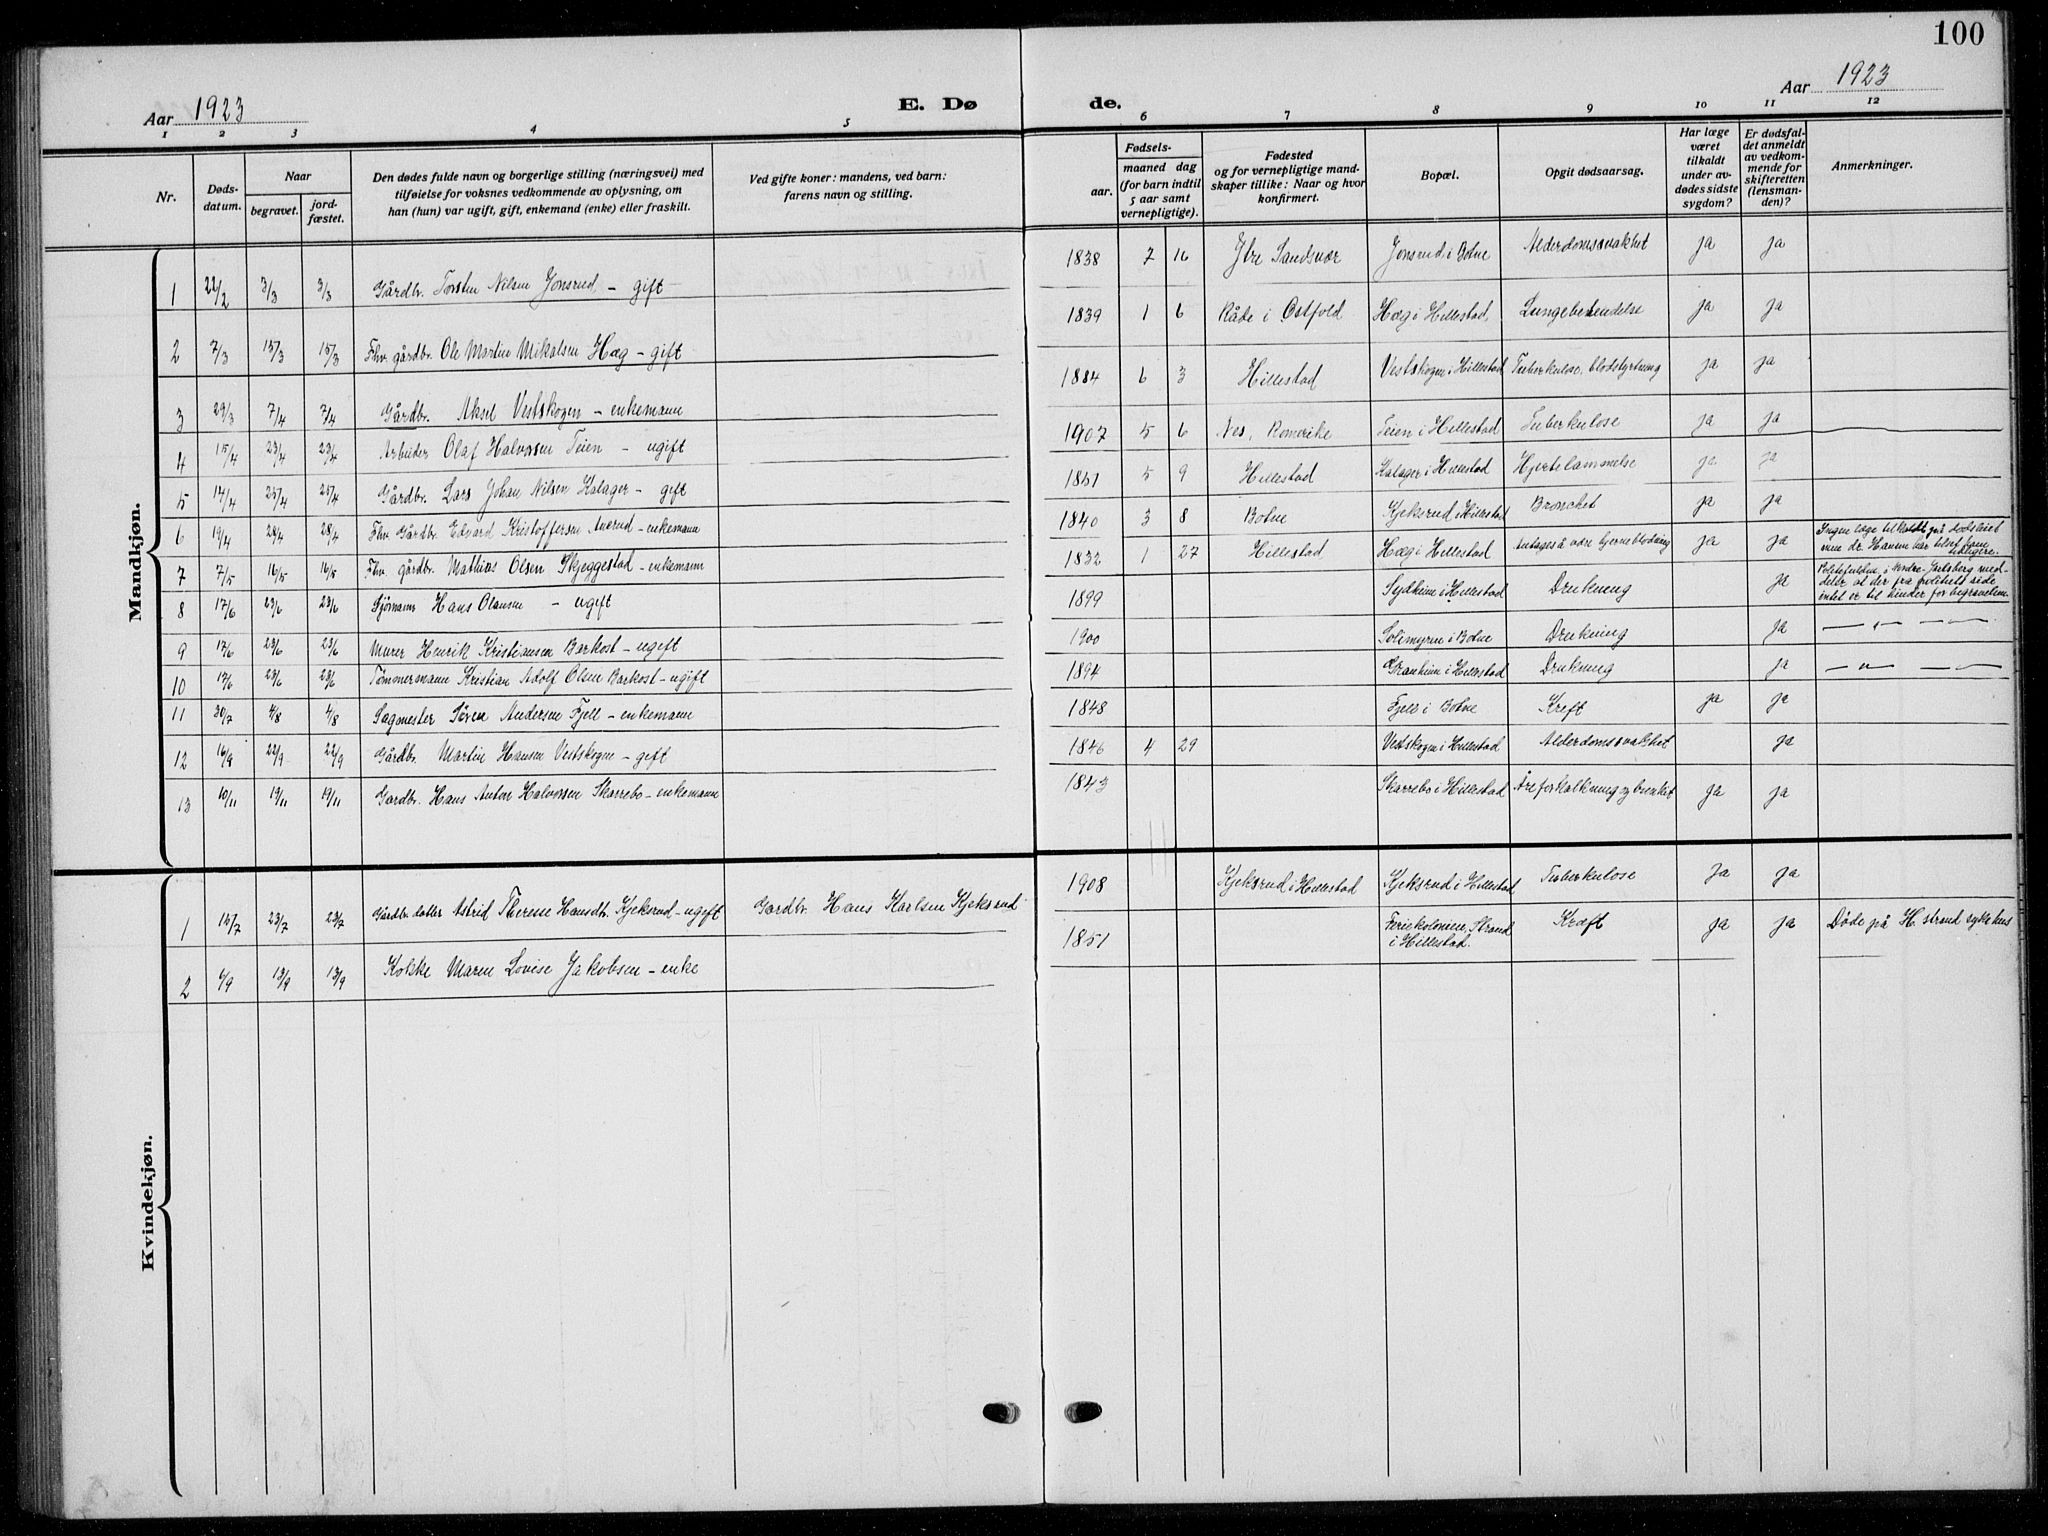 100
Aar 1923
E. Dø
de.
Aar 1923
1 2 3 4 5 6 7 8 9 10 11 12
Nr.
Døds-
datum.
Naar
begravet.
jord-
fæstet.
Den dødes fulde navn og borgerlige stilling (næringsvei) med
tilføielse for voksnes vedkommende av oplysning, om
han (hun) var ugift, gift, enkemand (enke) eller fraskilt.
Ved gifte koner: mandens, ved barn:
farens navn og stilling.
Fødsels-
aar.
maaned dag
(for barn indtil
5 aar samt
vernepligtige).
Fødested
og for vernepligtige mand-
skaper tillike: Naar og hvor
konfirmert.
Bopæl.
Opgit dødsaarsag.
Har læge
været
tilkaldt
under av-
dødes sidste
sygdom?
Er dødsfal-
det anmeldt
av vedkom-
mende for
skifteretten
(lensman-
den)?
Anmerkninger.
Mandkjøn.
1 22/2 3/3 3/3 Gårdbr. Torsten Nilsen Jonsrud – gift 1838 7 16 Ytre Sandsvær Jonsrud i Botne Alderdomssvakhet ja ja
2 7/3 15/3 15/3 Fhv. gårdbr. Ole Martin Mikalsen Hæg – gift 1839 1 6 Råde i Østfold Hæg i Hillestad Lungebetendelse ja ja
3 29/3 7/4 7/4 Gårdbr. Aksel Vestskogen – enkemann 1884 6 3 Hillestad Vestskogen i Hillestad Tuberkulose, blodstyrtning ja ja
4 15/4 23/4 23/4 Arbeider Olaf Halvorsen Teien – ugift 1907 5 6 Nes, Romerike Teien i Hillestad Tuberkulose ja ja
5 17/4 25/4 25/4 Gårdbr. Lars Johan Nilsen Kalager – gift 1851 5 9 Hillestad Kalager i Hillestad Hjertelammelse ja ja
6 19/4 28/4 28/4 Fhv. Gårdbr. Edvard Kristoffersen Aaserud – enkemann 1840 3 8 Botne Kjeksrud i Hillestad Bronchet ja ja
7 7/5 16/5 16/5 Fhv. gårdbr. Mathias Olsen Skjeggestad – enkemann 1832 1 27 Hillestad Hæg i Hillestad Antages å være hjerneblødning ja ja Ingen læge tilkaldt på dødsleiet
men dr. Hanem har tilset ham
tidligere.
8 17/6 23/6 23/6 Sjømann Hans Olausen – ugift 1899 Sydheim i Hillestad Drukning ja Politifuldm. i Nordre Jarlsberg med-
deler at der fra politiets side
intet er til hinder for begravelsen.
9 17/6 23/6 23/6 Murer Henrik Kristiansen Barkost – ugift 1900 Solimyren i Botne Drukning ja — " — — " —
10 17/6 23/6 23/6 Tømmermann Kristian Adolf Olsen Barkost – ugift 1894 Granheim i Hillestad Drukning ja — " — — " —
11 30/7 4/8 4/8 Sagmester Søren Andersen Fjell – enkemann 1848 Fjell i Botne Kreft ja ja
12 16/9 22/9 22/9 Gårdbr. Martin Hansen Vestskogen – gift 1846 4 29 Vestskogen i Hillestad Alderdomssvakhet ja
13 10/11 19/11 19/11 Gardbr. Hans Anton Halvorsen Skarrebo – enkemann 1843 Skarrebo i Hillestad Åreforkalkning og bronket ja ja
Kvindekjøn.
1 15/7 23/7 23/7 Gårdbr. datter Astrid Therese Hansdtr. Kjeksrud – ugift Gardbr. Hans Karlsen Kjeksrud 1908 Kjeksrud i Hillestad Kjeksrud i Hillestad Tuberkulose Ja ja
2 6/9 13/9 13/9 Kokke Maren Lovise Jakobsen – enke 1851 Feriekolonien, Strand
i Hillestad. Kræft ja ja Døde på H.strand sykehus